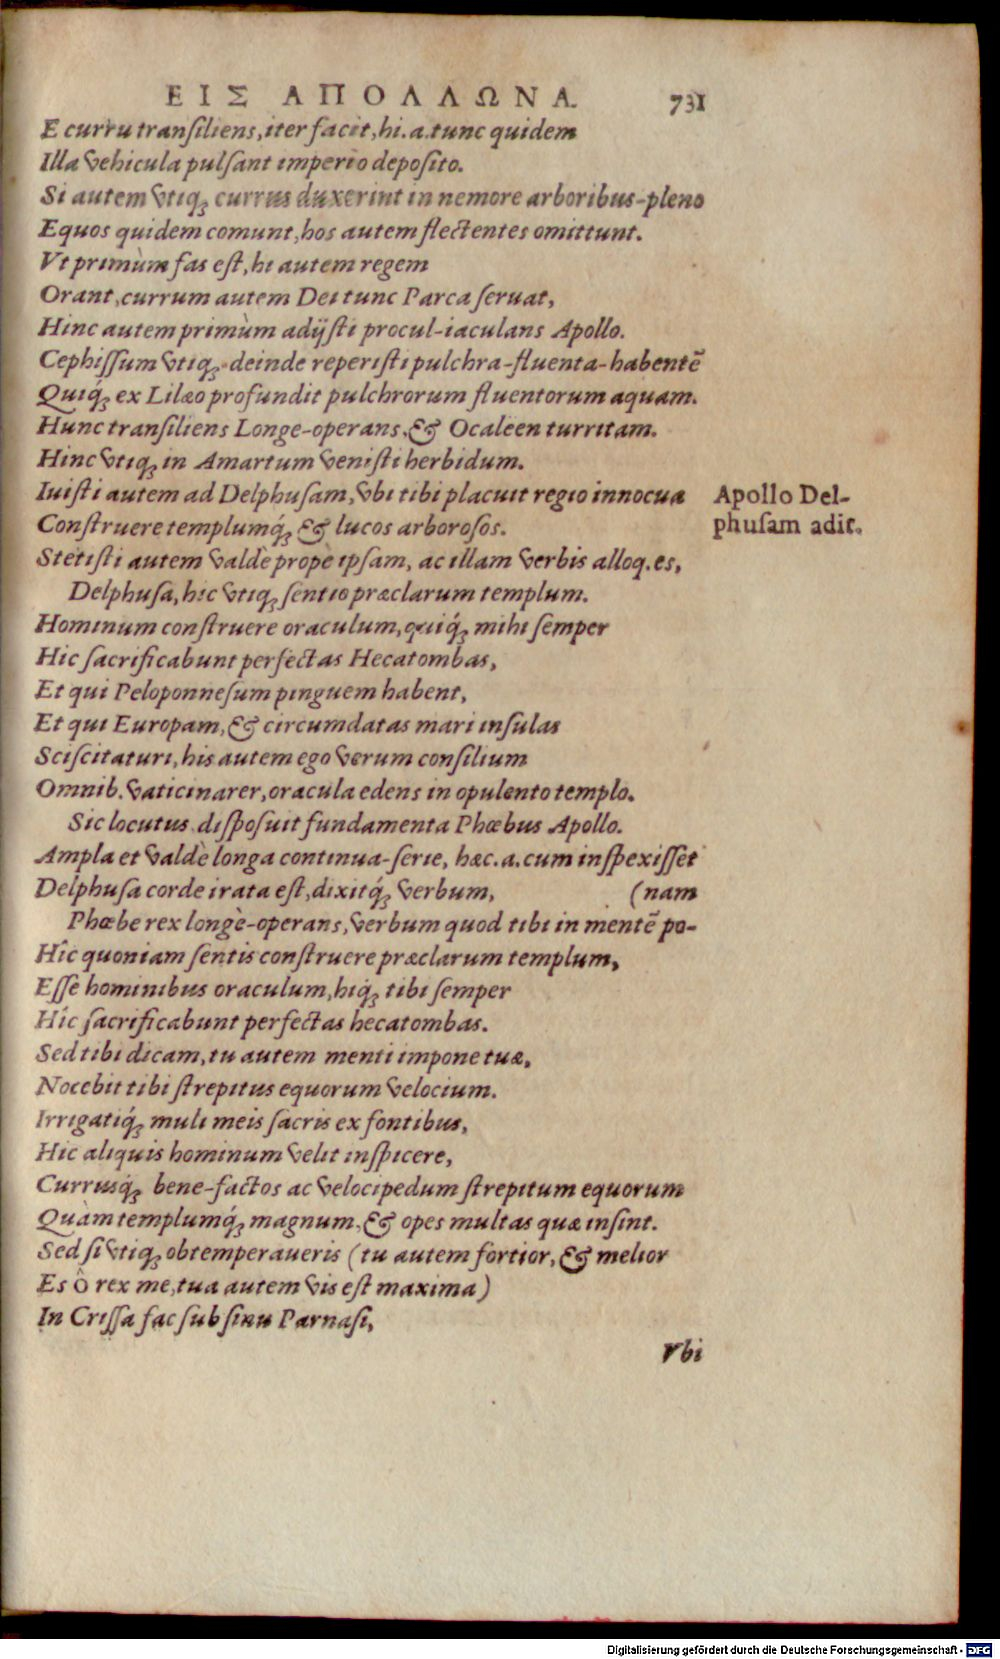 ΕΙΣ ΑΠΟΛΛΩΝΑ. 731
E curru transiliens, iter facit, hi. a. tunc quidem
Illa vehicula pulsant imperio deposito.
Si autem vtiq; currus duxerint in nemore arboribus-pleno
Equos quidem comunt, hos autem flectentes omittunt.
Vt primùm fas est, hi autem regem
Orant, currum autem Dei tunc Parca seruat,
Hinc autem primùm adijsti procul-iaculans Apollo.
Cephissum vtiq; deinde reperisti pulchra-fluenta-habentē
Quiq́; ex Lilæo profundit pulchrorum fluentorum aquam.
Hunc transiliens Longe-operans, & Ocaleen turritam.
Hinc vtiq; in Amartum venisti herbidum.
Iuisti autem ad Delphusam, vbi tibi placuit regio innocua
Apollo Del-
phusam adit.
Construere templumq́; & lucos arborosos.
Stetisti autem valdè propè ipsam, ac illam verbis alloq. es,
Delphusa, hic vtiq; sentio præclarum templum.
Hominum construere oraculum, quiq́; mihi semper
Hic sacrificabunt perfectas Hecatombas,
Et qui Peloponnesum pinguem habent,
Et qui Europam, & circumdatas mari insulas
Sciscitaturi, his autem ego verum consilium
Omnib. vaticinarer, oracula edens in opulento templo.
Sic locutus disposuit fundamenta Phœbus Apollo.
Ampla et valdè longa continua-serie, hæc. a. cum inspexisset
Delphusa corde irata est, dixitq́; verbum, (nam
Phœbe rex longè-operans, verbum quod tibi in mentē po-
Hîc quoniam sentis construere præclarum templum,
Esse hominibus oraculum, hiq́; tibi semper
Hîc sacrificabunt perfectas hecatombas.
Sed tibi dicam, tu autem menti impone tuæ,
Nocebit tibi strepitus equorum velocium.
Irrigatiq́; muli meis sacris ex fontibus,
Hic aliquis hominum velit inspicere,
Currusq́; bene-factos ac velocipedum strepitum equorum
Quàm templumq́; magnum, & opes multas quæ insint.
Sed si vtiq; obtemperaueris (tu autem fortior, & melior
Es ô rex me, tua autem vis est maxima)
In Crissa fac sub sinu Parnasi,
Vbi
Digitalisierung gefördert durch die Deutsche Forschungsgemeinschaft - DFG